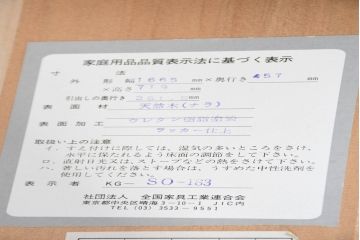 家庭用品品質表示法に基づく表示
寸法
外形幅1665mm×奥行き457mm
×高さ719mm
引出しの奥行き mm
表面材 天然木(ナラ)
表面加工 ウレタン樹脂塗装
ラッカー仕上
取扱い上の注意
イ. すえ付けに際しては、湿気の多いところをさけ、
水平に保たれるよう床面の調節をして下さい。
ロ. 直射日光又は、ストーブなどの熱をさけて下さい。
ハ. 著しい汚れを落とす場合は、うすめた中性洗剤を
使用してください。
表示者 KG— SO-183
社団法人 全国家具工業連合会
東京都中央区晴海3-10-1 JIC内
TEL (03) 3533-9551